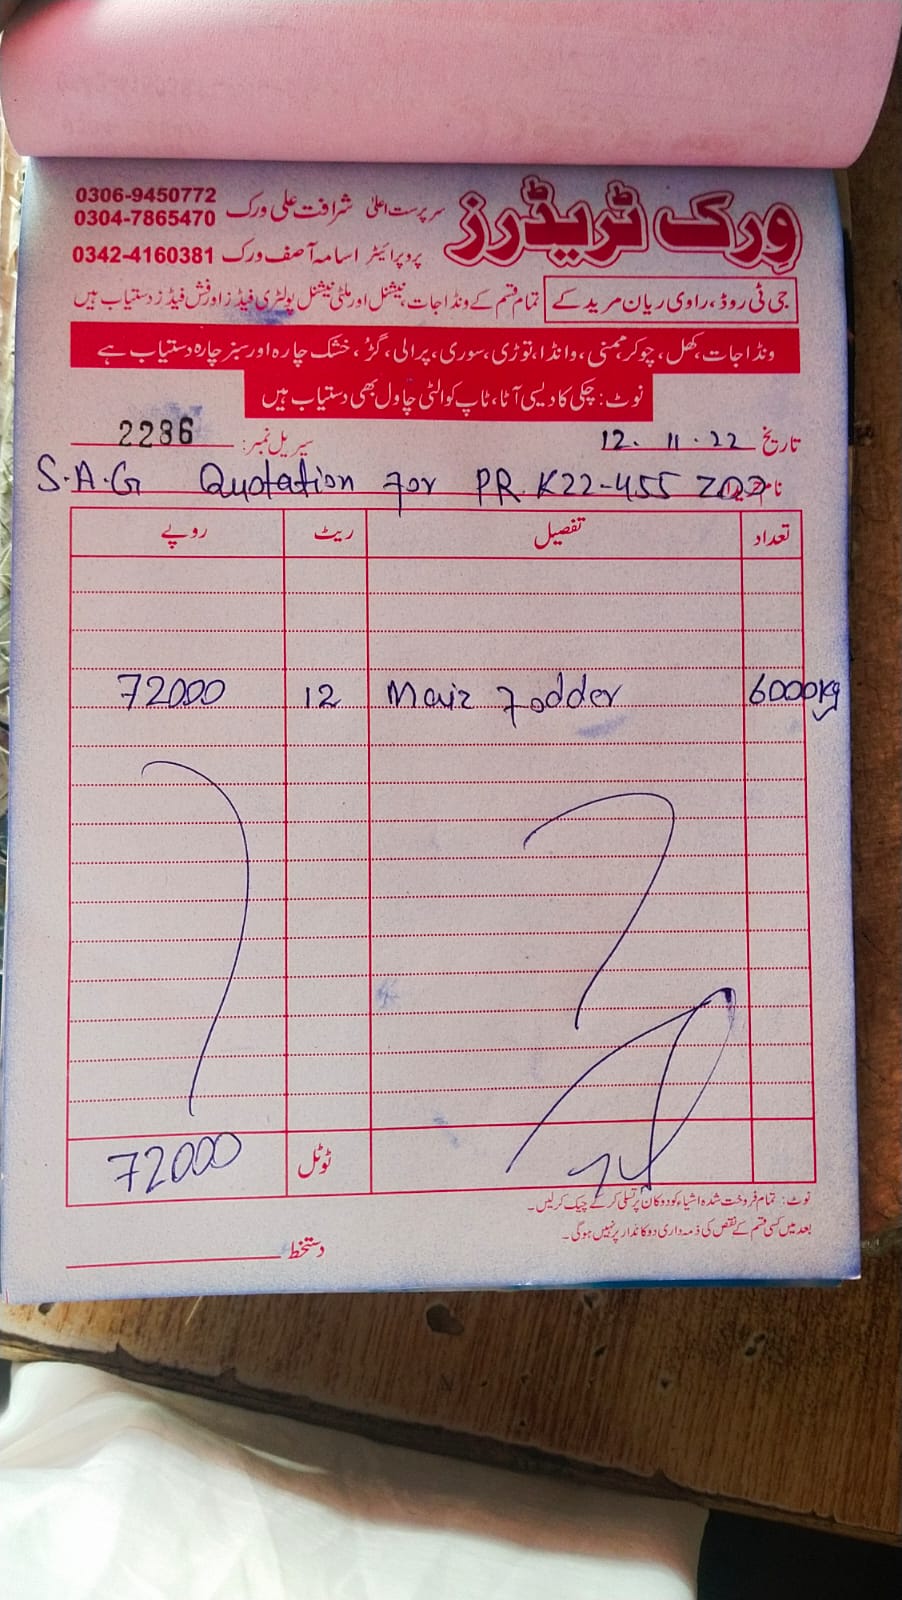 ورک ٹریڈرز
سرپرست اعلیٰ شرافت علی ورک 0306-9450772
0304-7865470
پروپرائیٹر اسامہ آصف ورک 0342-4160381
جی ٹی روڈ، راوی ریان مریدکے تمام قسم کے ونڈا جات، نیشنل اور ملٹی نیشنل پولٹری فیڈز اور فش فیڈز دستیاب ہیں
ونڈا جات، کھل، چوکر، ممنی، وانڈا، توڑی، سوری، پرالی، گڑ، خشک چارہ اور سبز چارہ دستیاب ہے
نوٹ: چکی کا دیسی آٹا، ٹاپ کوالٹی چاول بھی دستیاب ہیں
تاریخ 12. 11. 22 سیریل نمبر: 2286
S.A.G Quotation for PR. K22-455
تعداد تفصیل ریٹ روپے
6000Kg Maiz Fodder 12 72000
ٹوٹل 72000
نوٹ: تمام فروخت شدہ اشیاء کو دوکان پر تسلی کر کے چیک کر لیں۔
بعد میں کسی قسم کے نقص کی ذمہ داری دوکاندار پر نہیں ہوگی۔
دستخط